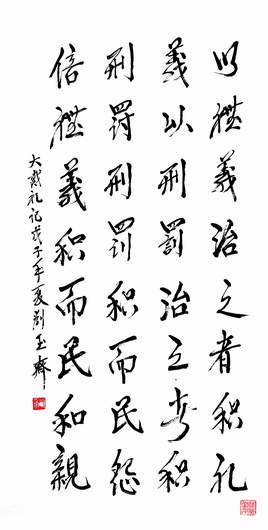 以禮義治之者积礼
義以刑罰治之者积
刑罸刑罰积而民怨
倍禮義积而民和親
大戴礼记戊子年夏劉玉齋